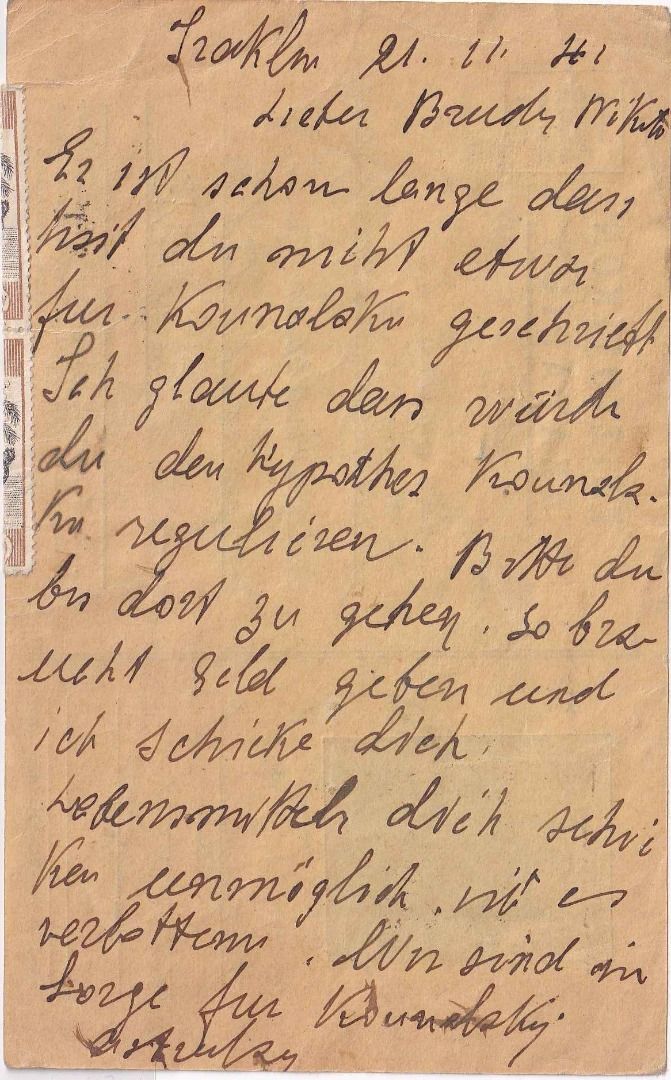 Iraklin 21. 11. 41
Lieber Bruder Nikito
Es ist schon lange dass
du nicht etwas
fur Kounalaku geschrieft
Ich glaube dass würde
du den Hypothes Kounala-
ku regulieren. Bitte du
bis dort zu gehen. So bra-
ucht Geld geben und
ich schicke dich.
Lebensmitteln dich schi
ken unmöglich. ist es
verbottenn. Wir sind in
Sorge fur Kounalaky.